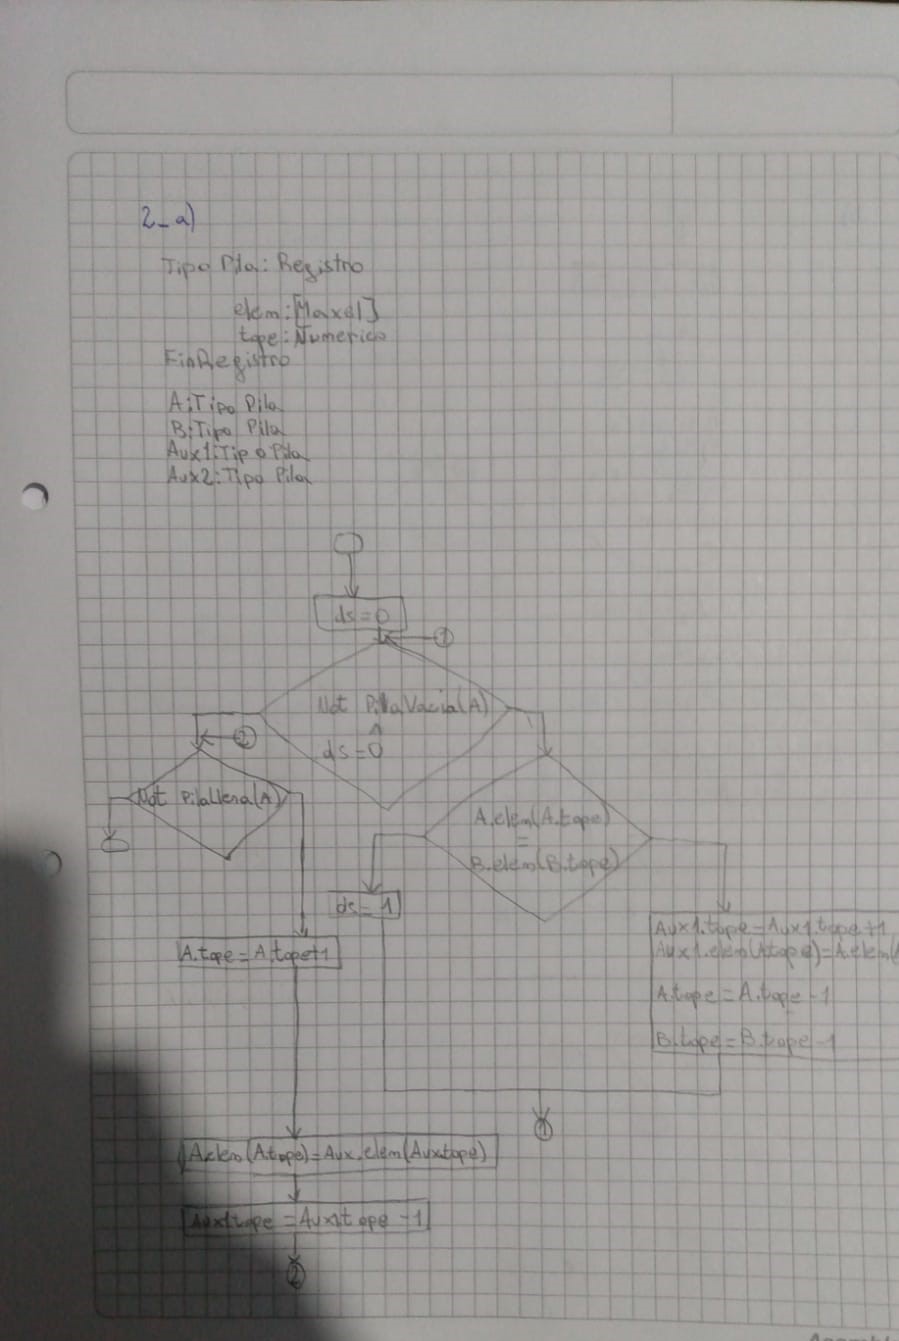 2_a)
Tipo Pila: Registro
elem:[Maxel]
tope: Numerico
FinRegistro
A:Tipo Pila
B:Tipo Pila
Aux1:Tipo Pila
Aux2:Tipo Pila
ds=0
1
Not PilaVacia(A)
^
ds=0
2
Not Pilallena(A)
A.elem(A.tope)
=
B.elem(B.tope)
ds=1
Aux1.tope=Aux1.tope+1
Aux1.elem(A.tope)=A.elem(A
A.tope=A.tope-1
B.tope=B.tope-1
A.tope=A.tope+1
1
A.elem(A.tope)=Aux.elem(Aux.tope)
Aux1.tope=Aux1.tope-1
2